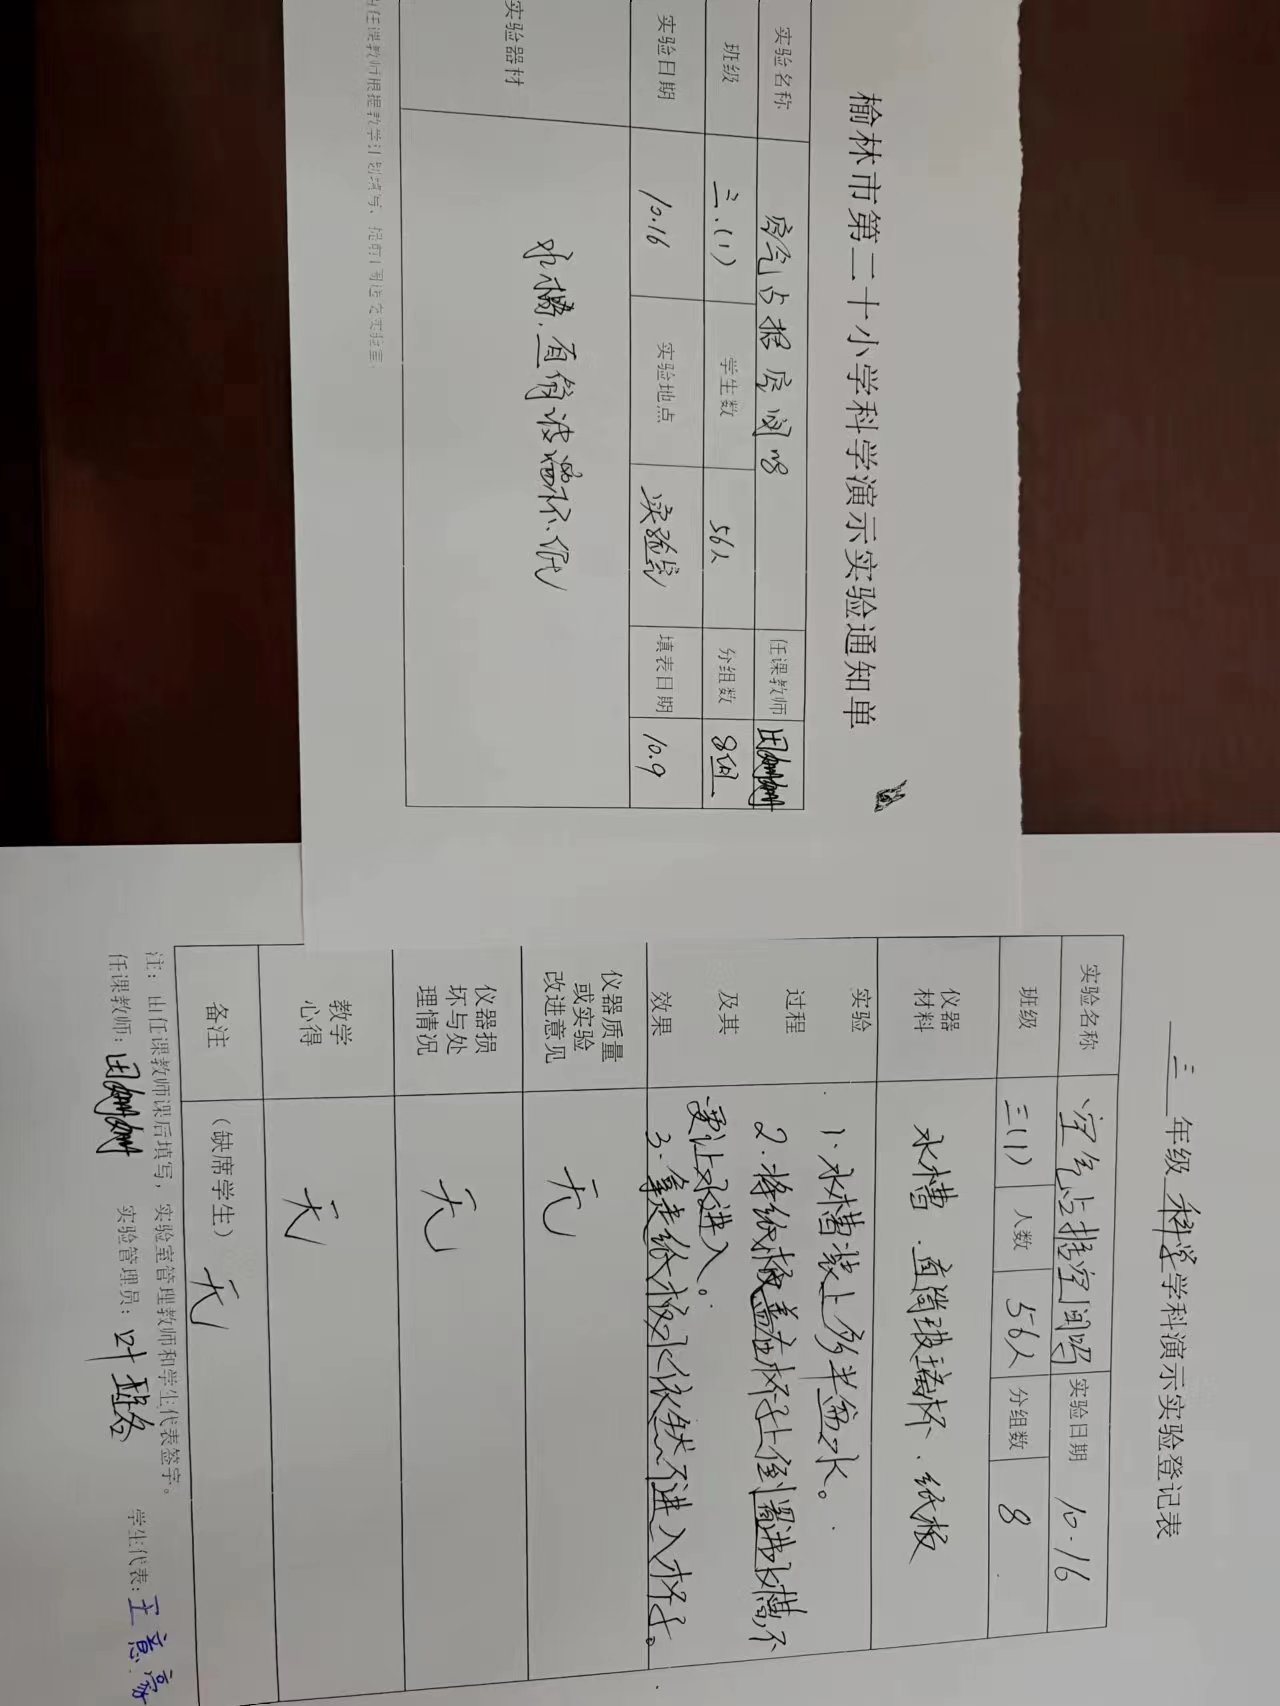 榆林市第二十小学科学演示实验通知单
实验名称 空气占据空间吗 任课教师 田
班级 三.(1) 学生数 56人 分组数 8组
实验日期 10.16 实验地点 实验室 填表日期 10.9
实验器材 水槽.直筒玻璃杯、纸
由任课教师根据教学计划填写、提前1周送交实验室
三 年级 科学 学科演示实验登记表
实验名称 空气占据空间吗 实验日期 10.16
班级 三(1) 人数 56人 分组数 8
仪器材料 水槽.直筒玻璃杯.纸板
实验过程及其效果
1.水槽装上多半盆水。
2.将纸板盖在杯子上倒置进水槽,不
要让水进入。
3.拿走纸板水依然不进入杯子。
仪器质量或实验改进意见 无
仪器损坏与处理情况 无
教学心得 无
备注 (缺席学生) 无
注:由任课教师课后填写,实验室管理教师和学生代表签字。
任课教师: 田 实验管理员: 叶 学生代表: 王意豪